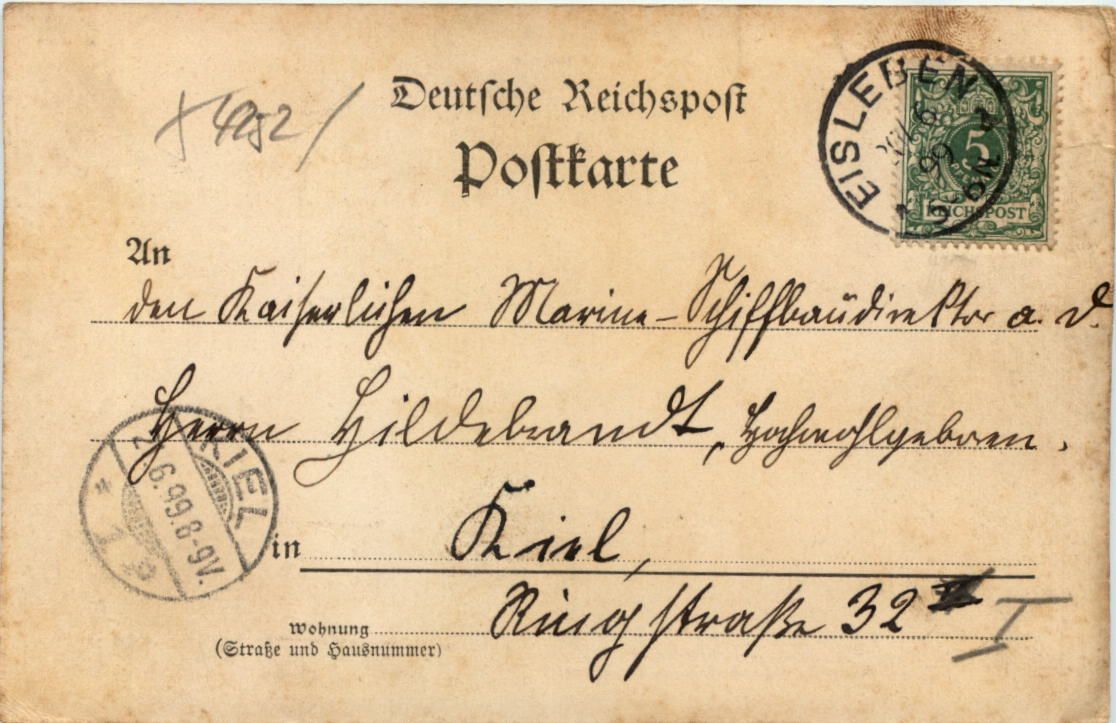 Deutsche Reichspost
Postkarte
EISLEBEN
5
REICHSPOST
An
den Kaiserlichen Marine-Schiffbaudirektor a. D.
Herrn Hildebrandt, Hochwohlgeboren.
KIEL
6.99.8-9V.
in Kiel,
Ringstraße 32 I
Wohnung
(Straße und Hausnummer)